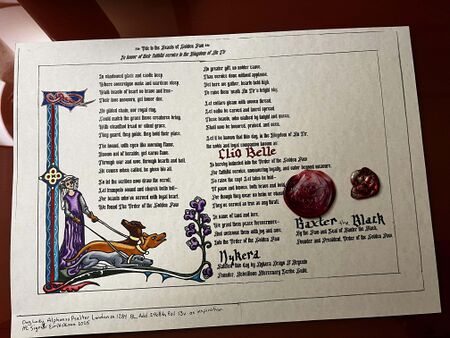 An Ode to the Hounds of Golden Paw
In honor of their faithful service to the Kingdom of An Tir
In shadowed glen and castle deep,
Where sovereigns wake and warriors sleep,
Walk hounds of heart so brave and true—
Their love unsworn, yet honor due.
No gilded chain, nor royal ring,
Could match the grace these creatures bring.
With steadfast tread or silent grace,
They guard, they guide, they hold their place.
The hound, with eyes like morning flame,
Knows not of heraldry, yet earns fame.
Through war and woe, through hearth and hall,
He comes when called, he gives his all.
So let the scribes now draw the scroll,
Let trumpets sound and church bells toll—
For beasts who've served with loyal heart,
We found The Order of the Golden Paw
No greater gift, no nobler cause,
Than service done without applause,
Yet here we gather, hearts held high,
To raise them 'neath An Tir's bright sky.
Let collars gleam with woven thread,
Let oaths be carved and laurel spread.
Those hounds, who walked by knight and queen,
Shall now be honored, praised, and seen.
Let it be known that this day, in the Kingdom of An Tir,
the noble and loyal companion known as
Clio Belle
Is hereby inducted into the Order of the Golden Paw
For faithful service, unwavering loyalty, and valor beyond measure.
So raise the cup! Let tales be told—
Of paws and honor, both brave and bold
For though they wear no helm or crown
They've earned as true as any thrall.
In name of land and lore,
We grant them peace forevermore—
And welcome them with joy and awe,
Into the Order of the Golden Paw
Baxter the Black
By the Paw and Seal of Baxter the Black,
Founder and President, Order of the Golden Paw
Nykera
Founder, Rebellious Mercenary Scribe Guild
Dog Lady Alphonso Psalter London ca 1284 BL Add 24686, fol 13v as inspiration